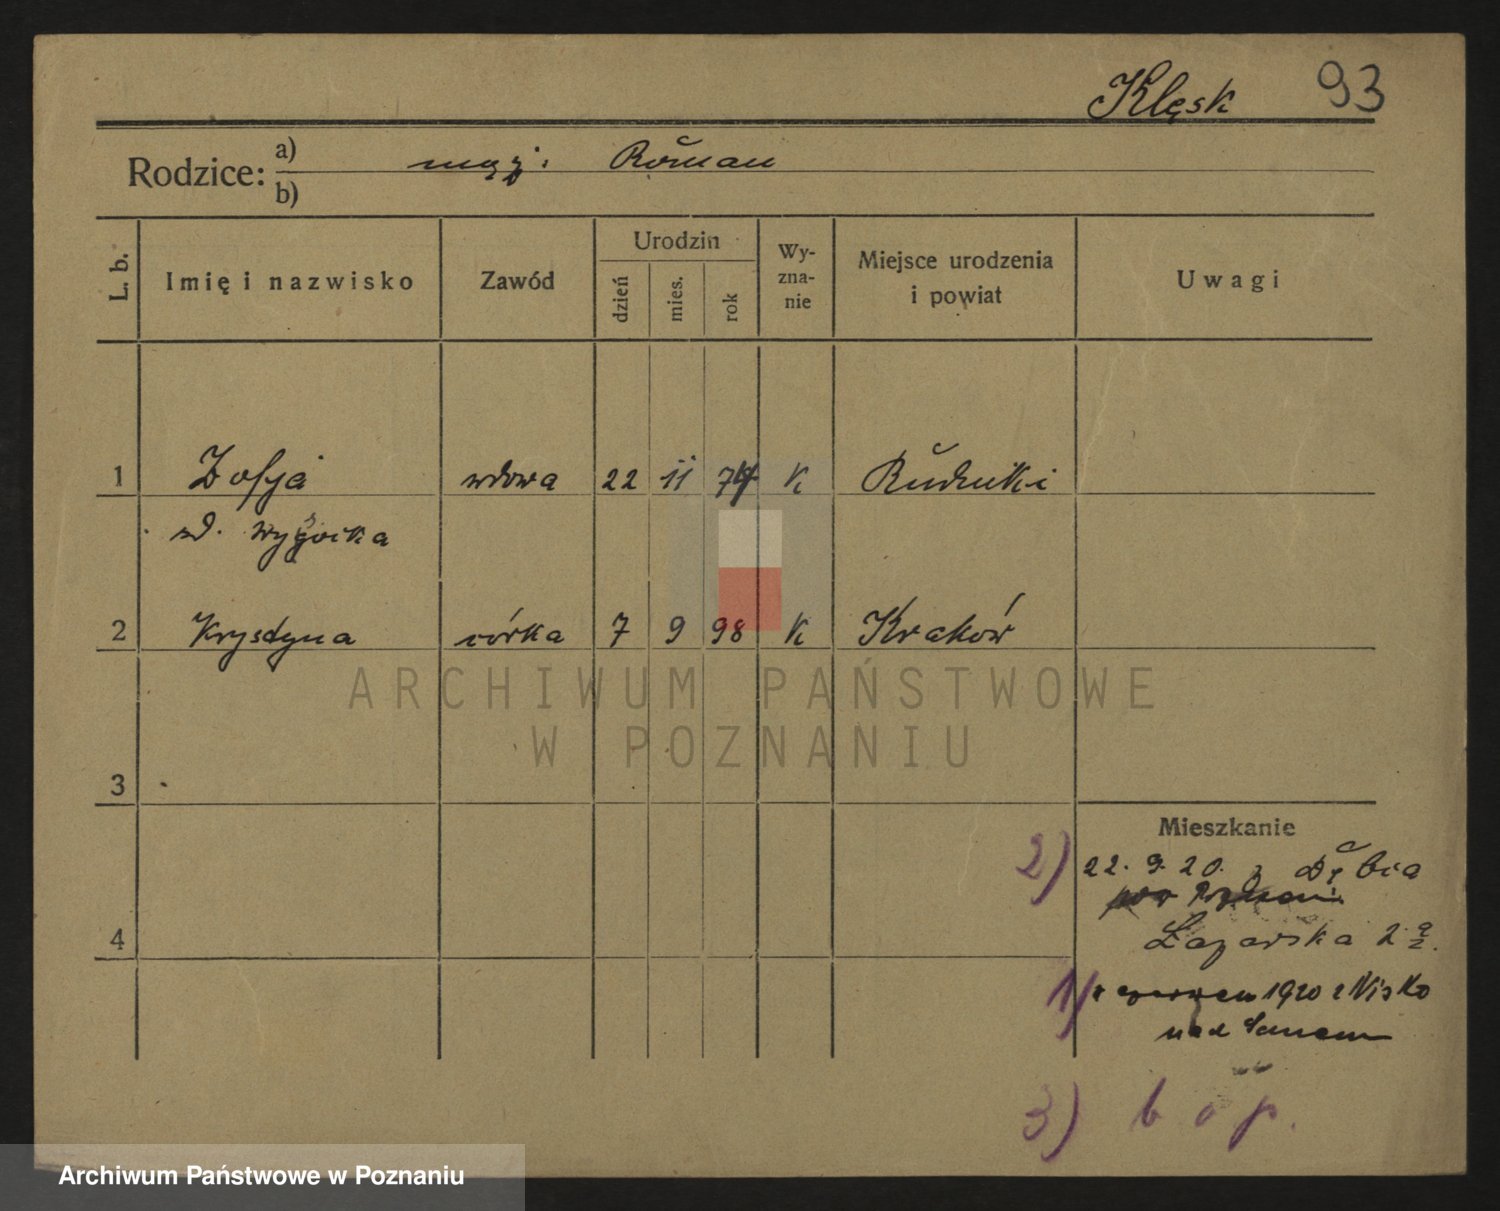 Klęsk 93
Rodzice: a) mąż: Roman
b)
L. b. Imię i nazwisko Zawód Urodzin dzień mies. rok Wy-zna-nie Miejsce urodzenia i powiat Uwagi
1 Zofja wdowa 22 11 74 K Rudniki
2 Krystyna córka 7 9 98 K Kraków
ARCHIWUM PAŃSTWOWE
W POZNANIU
3
Mieszkanie
2) 22. 9. 20. z Dębia
4
Łazarska 2
1) czerwcu 1920 z Nisko
nad Sanem
3) b o p.
Archiwum Państwowe w Poznaniu